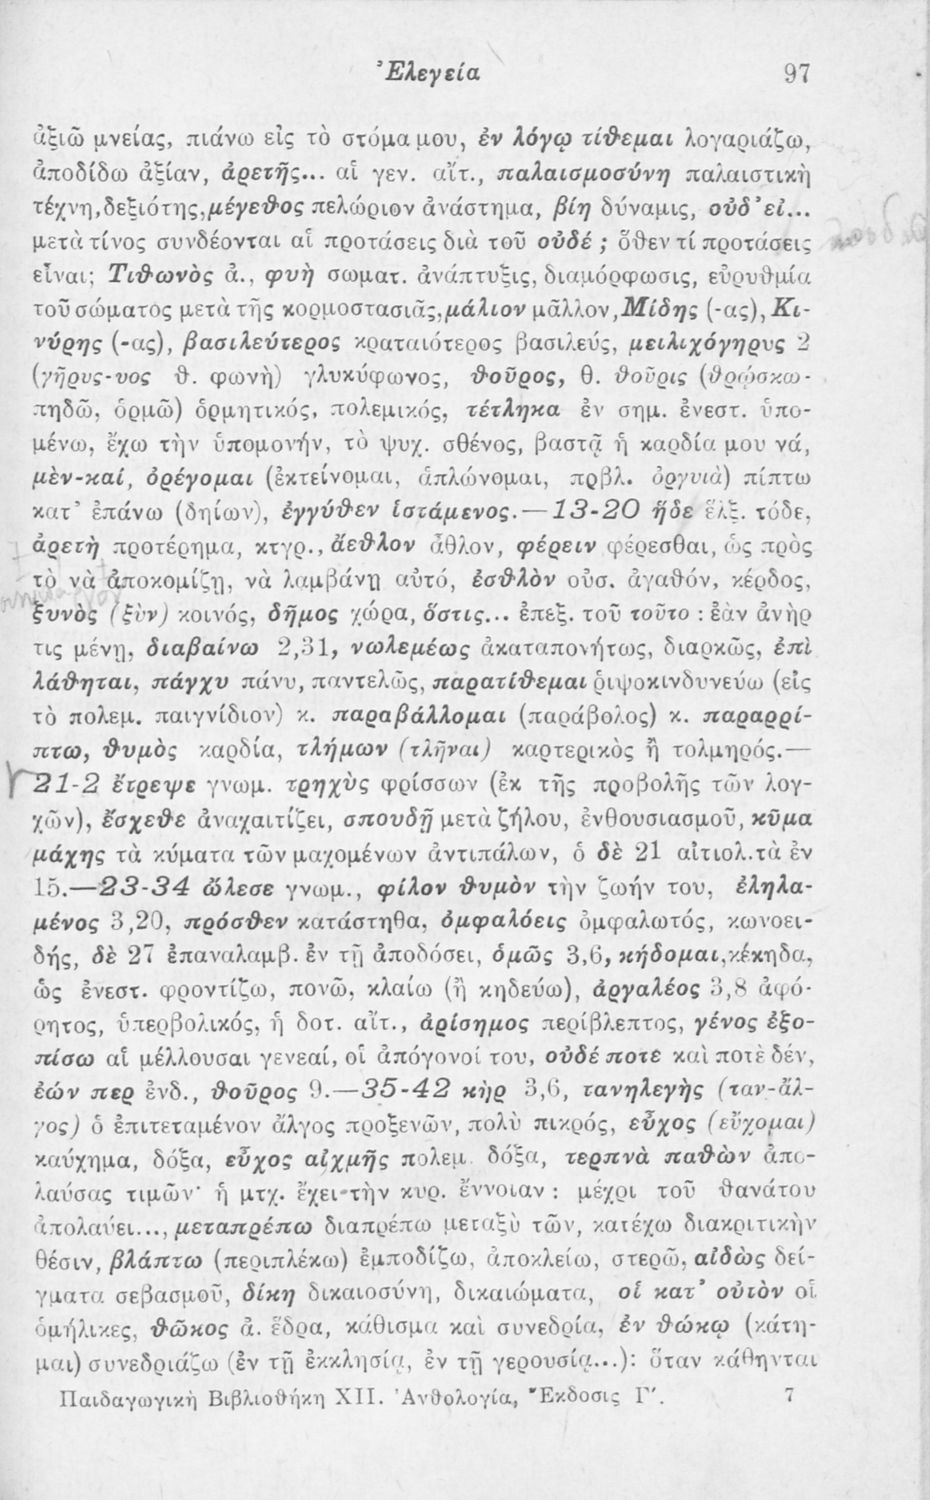 Ἐλεγεία 97
ἀξιῶ μνείας, πιάνω εἰς τὸ στόμα μου, ἐν λόγῳ τίθεμαι λογαριάζω,
ἀποδίδω ἀξίαν, ἀρετῆς... αἱ γεν. αἴτ., παλαισμοσύνη παλαιστικὴ
τέχνη, δεξιότης, μέγεθος πελώριον ἀνάστημα, βίη δύναμις, οὐδ' εἰ...
μετὰ τίνος συνδέονται αἱ προτάσεις διὰ τοῦ οὐδέ; ὅθεν τί προτάσεις
εἶναι; Τιθωνὸς ἀ., φυὴ σωματ. ἀνάπτυξις, διαμόρφωσις, εὐρυθμία
τοῦ σώματος μετὰ τῆς κορμοστασιᾶς, μάλιον μᾶλλον, Μίδης (-ας), Κι-
νύρης (-ας), βασιλεύτερος κραταιότερος βασιλεύς, μειλιχόγηρυς 2
(γῆρυς-υος θ. φωνὴ) γλυκύφωνος, θοῦρος, θ. θοῦρις (θρῴσκω-
πηδῶ, ὁρμῶ) ὁρμητικός, πολεμικός, τέτληκα ἐν σημ. ἐνεστ. ὑπο-
μένω, ἔχω τὴν ὑπομονήν, τὸ ψυχ. σθένος, βαστᾷ ἡ καρδία μου νά,
μὲν-καί, ὀρέγομαι (ἐκτείνομαι, ἁπλώνομαι, πρβλ. ὀργυιὰ) πίπτω
κατ' ἐπάνω (δηίων), ἐγγύθεν ἱστάμενος.—13-20 ἥδε ἕλξ. τόδε,
ἀρετὴ προτέρημα, κτγρ., ἄεθλον ἆθλον, φέρειν φέρεσθαι, ὡς πρὸς
τὸ νὰ ἀποκομίζῃ, νὰ λαμβάνῃ αὐτό, ἐσθλὸν οὐσ. ἀγαθόν, κέρδος,
ξυνὸς (ξὺν) κοινός, δῆμος χώρα, ὅστις... ἐπεξ. τοῦ τοῦτο : ἐὰν ἀνὴρ
τις μένῃ, διαβαίνω 2,31, νωλεμέως ἀκαταπονήτως, διαρκῶς, ἐπὶ
λάθηται, πάγχυ πάνυ, παντελῶς, παρατίθεμαι ῥιψοκινδυνεύω (εἰς
τὸ πολεμ. παιγνίδιον) κ. παραβάλλομαι (παράβολος) κ. παραρρί-
πτω, θυμὸς καρδία, τλήμων (τλῆναι) καρτερικὸς ἢ τολμηρός.—
21-2 ἔτρεψε γνωμ. τρηχὺς φρίσσων (ἐκ τῆς προβολῆς τῶν λογ-
χῶν), ἔσχεθε ἀναχαιτίζει, σπουδῇ μετὰ ζήλου, ἐνθουσιασμοῦ, κῦμα
μάχης τὰ κύματα τῶν μαχομένων ἀντιπάλων, ὁ δὲ 21 αἰτιολ. τὰ ἐν
15.—23-34 ὤλεσε γνωμ., φίλον θυμὸν τὴν ζωήν του, ἐληλα-
μένος 3,20, πρόσθεν κατάστηθα, ὀμφαλόεις ὀμφαλωτός, κωνοει-
δής, δὲ 27 ἐπαναλαμβ. ἐν τῇ ἀποδόσει, ὁμῶς 3,6, κήδομαι, κέκηδα,
ὡς ἐνεστ. φροντίζω, πονῶ, κλαίω (ἢ κηδεύω), ἀργαλέος 3,8 ἀφό-
ρητος, ὑπερβολικός, ἡ δοτ. αἴτ., ἀρίσημος περίβλεπτος, γένος ἐξο-
πίσω αἱ μέλλουσαι γενεαί, οἱ ἀπόγονοί του, οὐδέ ποτε καὶ ποτὲ δέν,
ἐών περ ἐνδ., θοῦρος 9.—35-42 κὴρ 3,6, τανηλεγὴς (ταν-ἄλ-
γος) ὁ ἐπιτεταμένον ἄλγος προξενῶν, πολὺ πικρός, εὖχος (εὔχομαι)
καύχημα, δόξα, εὖχος αἰχμῆς πολεμ. δόξα, τερπνὰ παθὼν ἀπο-
λαύσας τιμῶν· ἡ μτχ. ἔχει τὴν κυρ. ἔννοιαν : μέχρι τοῦ θανάτου
ἀπολαύει..., μεταπρέπω διαπρέπω μεταξὺ τῶν, κατέχω διακριτικὴν
θέσιν, βλάπτω (περιπλέκω) ἐμποδίζω, ἀποκλείω, στερῶ, αἰδὼς δεί-
γματα σεβασμοῦ, δίκη δικαιοσύνη, δικαιώματα, οἱ κατ' οὐτὸν οἱ
ὁμήλικες, θῶκος ἀ. ἕδρα, κάθισμα καὶ συνεδρία, ἐν θώκῳ (κάτη-
μαι) συνεδριάζω (ἐν τῇ ἐκκλησίᾳ, ἐν τῇ γερουσίᾳ...): ὅταν κάθηνται
Παιδαγωγικὴ Βιβλιοθήκη XII. Ἀνθολογία, Ἔκδοσις Γ'. 7